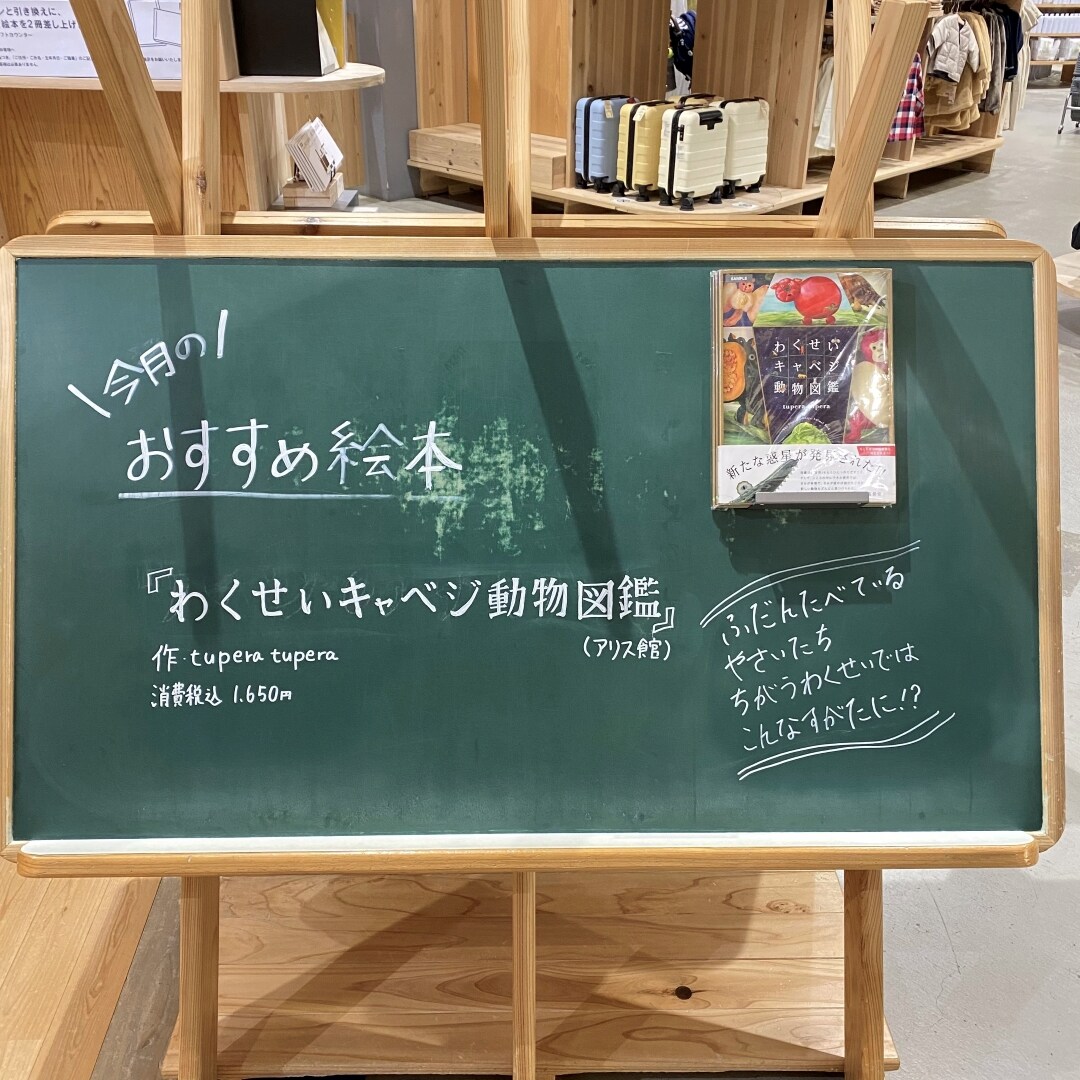 ンと引き換えに、
絵本を2冊差し上げ
今月の
おすすめ絵本
『わくせいキャベジ動物図鑑』
(アリス館)
作・tupera tupera
消費税込 1.650円
SAMPLE
わくせい
キャベジ
動物図鑑
tupera tupera
新たな惑星が発見された!!
ふだんたべている
やさいたち
ちがうわくせいでは
こんなすがたに!?